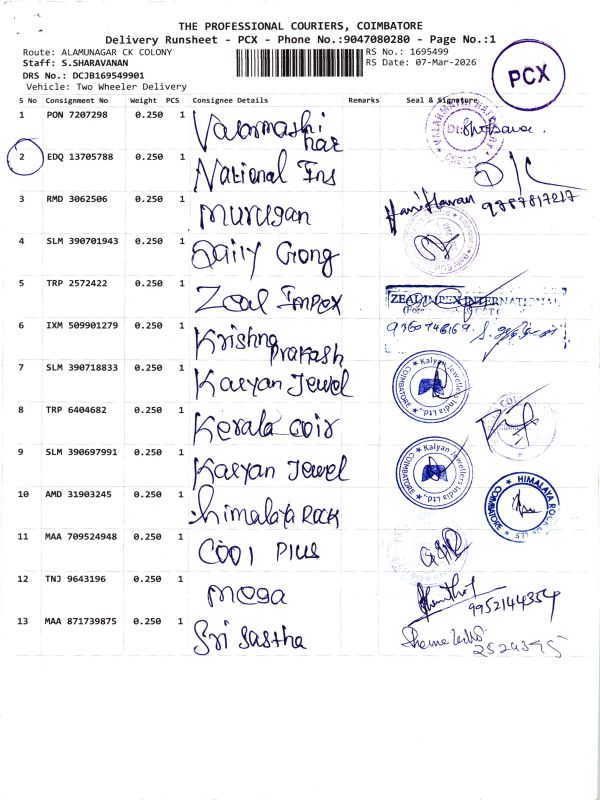 THE PROFESSIONAL COURIERS, COIMBATORE
Delivery Runsheet - PCX - Phone No.:9047080280 - Page No.:1
Route: ALAMUNAGAR CK COLONY
RS No.: 1695499
Staff: S.SHARAVANAN
RS Date: 07-Mar-2026
DRS No.: DCJB169549901
Vehicle: Two Wheeler Delivery
PCX
S No Consignment No Weight PCS Consignee Details Remarks Seal & Signature
1 PON 7207298 0.250 1
2 EDQ 13705788 0.250 1 National Ins
3 RMD 3062506 0.250 1 Murugan
9787817217
4 SLM 390701943 0.250 1 Gong
5 TRP 2572422 0.250 1 Zeal Impex
ZEAL IMPEX INTERNATIONAL
6 IXM 509901279 0.250 1 Krishna
Prakash
7 SLM 390718833 0.250 1 Kalyan Jewel
Kalyan Jewellers India Ltd. COIMBATORE
8 TRP 6404682 0.250 1 Kerala coir
9 SLM 390697991 0.250 1 Kalyan Jewel
Kalyan Jewellers India Ltd. COIMBATORE
10 AMD 31903245 0.250 1 himalaya Rock
HIMALAYA COIMBATORE
11 MAA 709524948 0.250 1 Cool Plus
12 TNJ 9643196 0.250 1 moga
9952144354
13 MAA 871739875 0.250 1 Sri Sastha
2524395